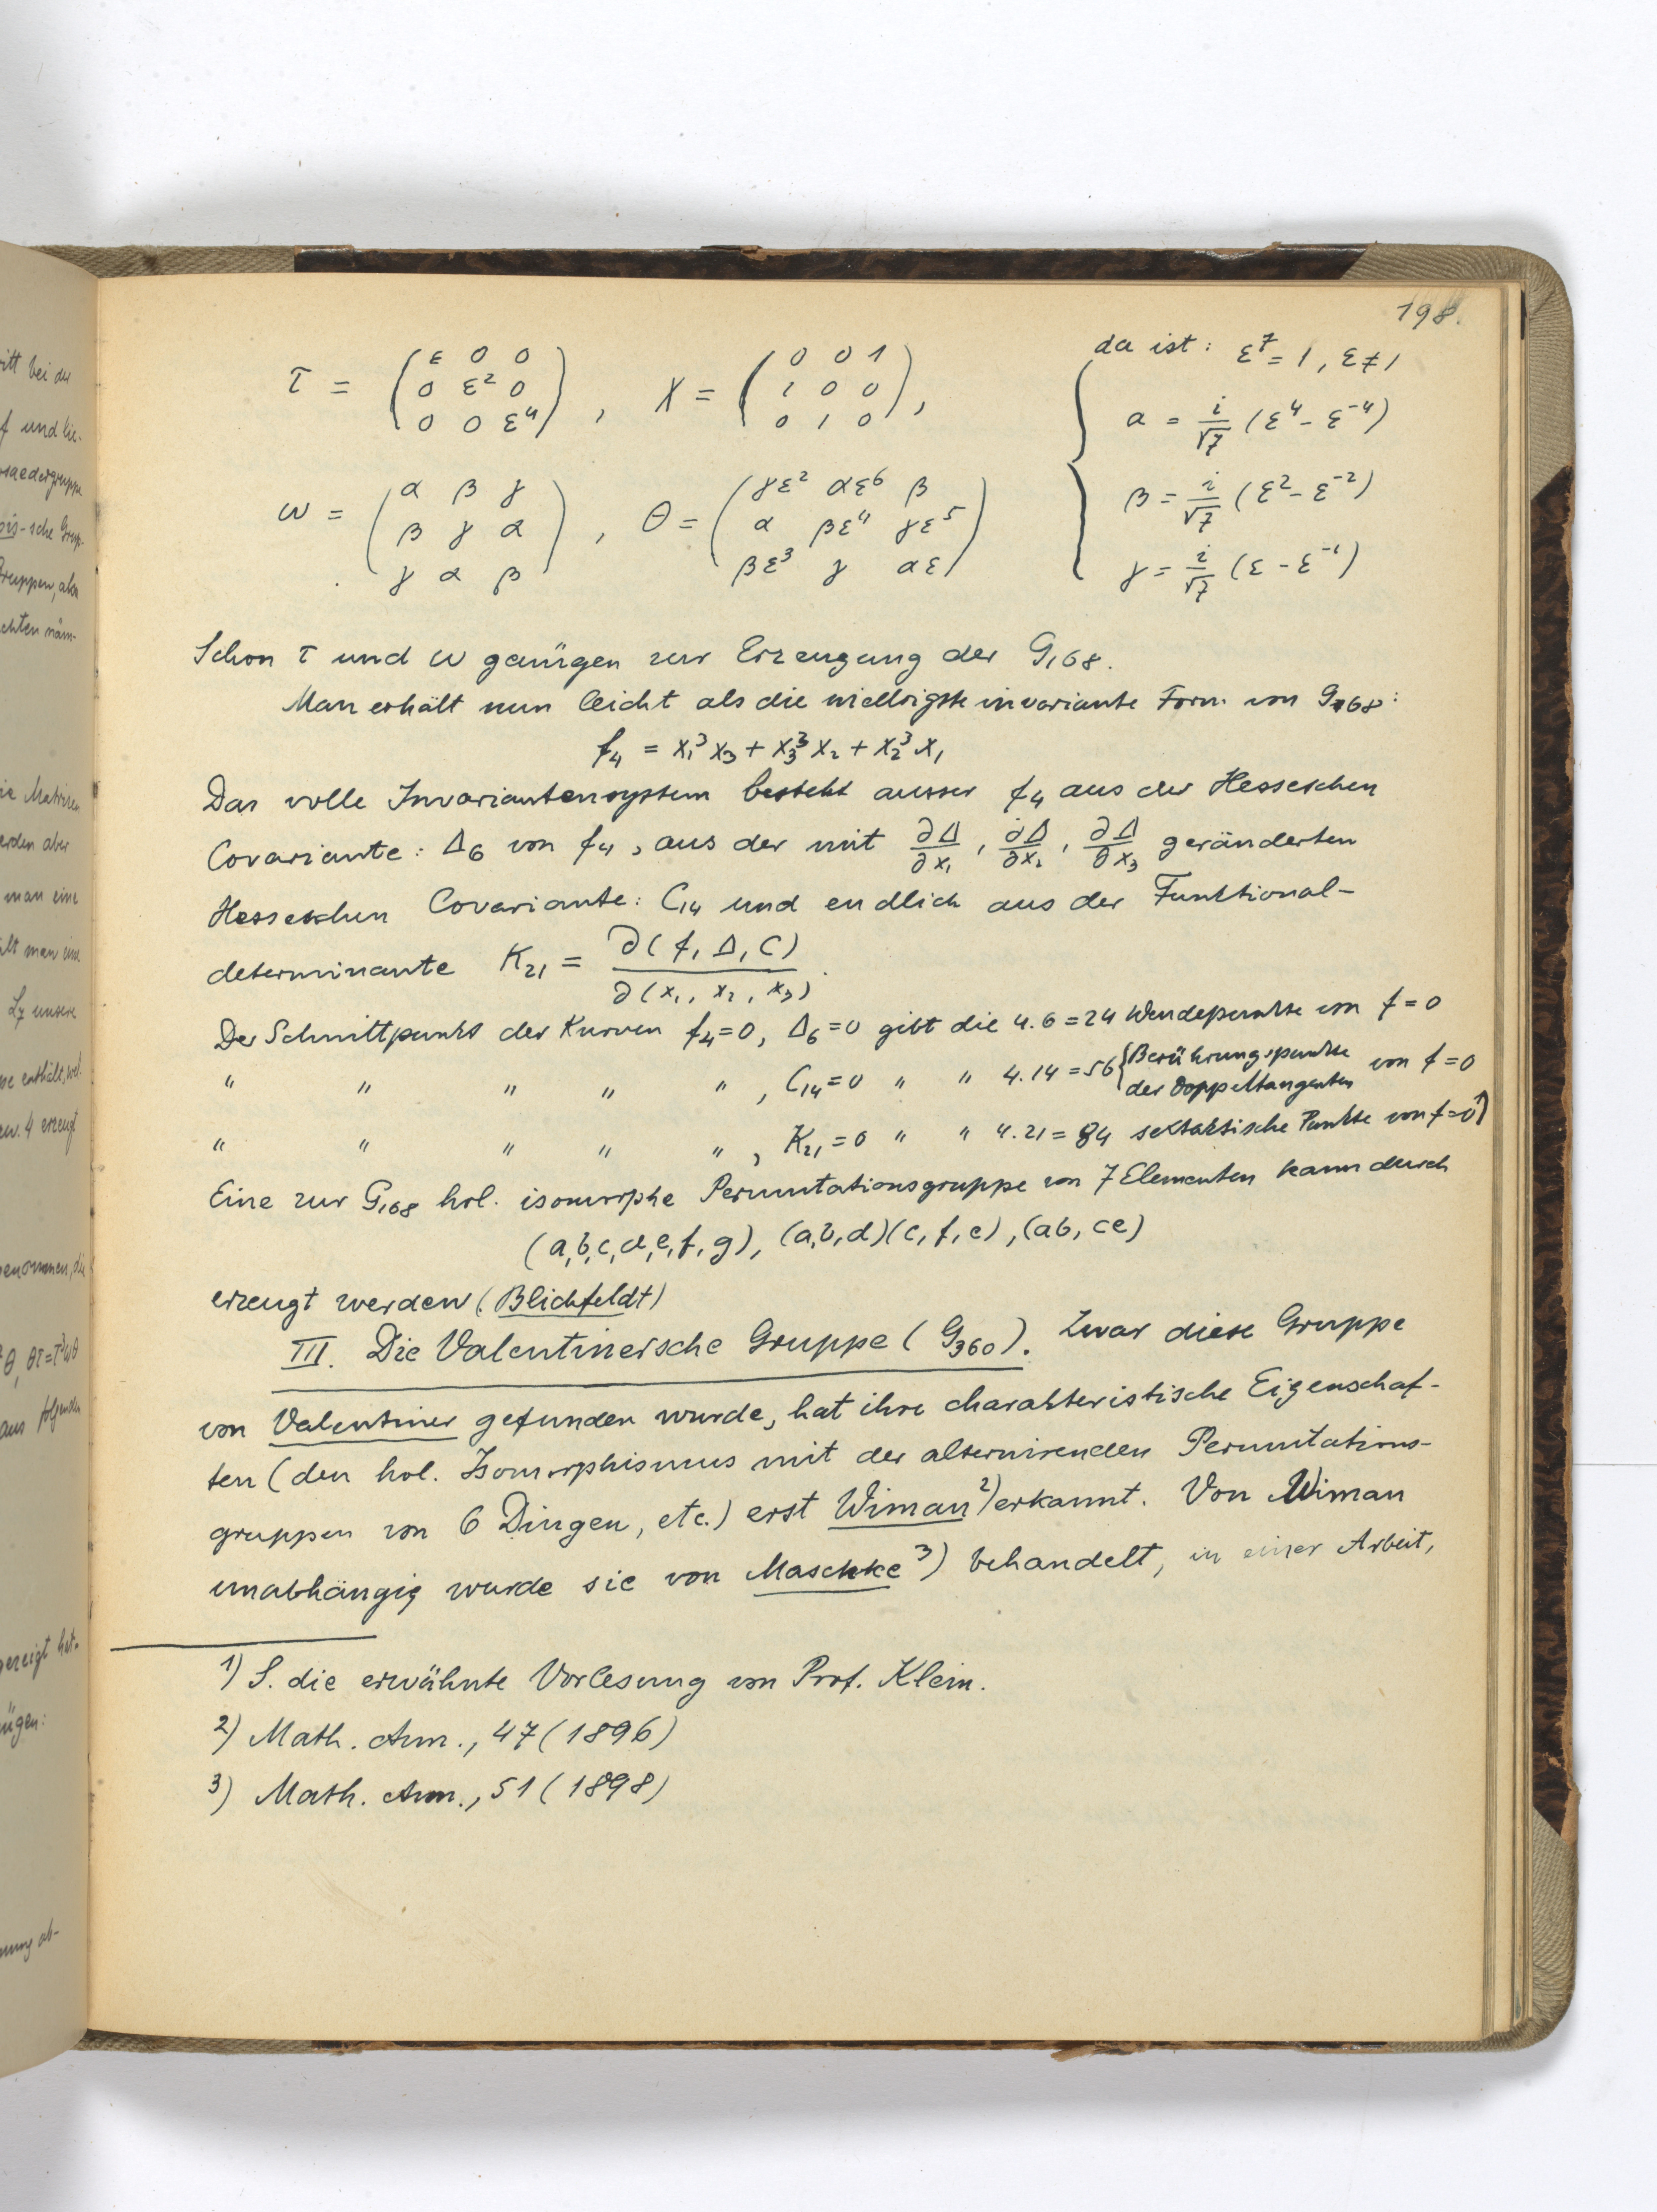 198.
da ist: ε⁷ = 1, ε ≠ 1
τ = (ε 0 0 / 0 ε² 0 / 0 0 ε⁴), χ = (0 0 1 / 1 0 0 / 0 1 0),
α = i/√7 (ε⁴ - ε⁻⁴)
β = i/√7 (ε² - ε⁻²)
γ = i/√7 (ε - ε⁻¹)
ω = (α β γ / β γ α / γ α β), θ = (γε² αε⁶ β / α βε⁴ γε⁵ / βε³ γ αε)
Schon τ und ω genügen zur Erzeugung der G₁₆₈.
Man erhält nun leicht als die niedrigste invariante Form von G₁₆₈:
f₄ = x₁³x₃ + x₃³x₂ + x₂³x₁
Das volle Invariantensystem besteht ausser f₄ aus der Hesseschen
Covariante: Δ₆ von f₄, aus der mit ∂Δ/∂x₁, ∂Δ/∂x₂, ∂Δ/∂x₃ geränderten
Hesseschen Covariante: C₁₄ und endlich aus der Funktional-
determinante K₂₁ = ∂(f, Δ, C)/∂(x₁, x₂, x₃).
Der Schnittpunkt der Kurven f₄=0, Δ₆=0 gibt die 4.6=24 Wendepunkte von f=0
" " " " ", C₁₄=0 " " 4.14=56 {Berührungspunkte der Doppeltangenten von f=0
" " " " ", K₂₁=0 " " 4.21=84 sextaktische Punkte von f=0¹)
Eine zur G₁₆₈ hol. isomorphe Permutationsgruppe von 7 Elementen kann durch
(a,b,c,d,e,f,g), (a,b,d)(c,f,e), (ab, ce)
erzeugt werden (Blichfeldt)
III. Die Valentinersche Gruppe (G₃₆₀). Zwar diese Gruppe
von Valentiner gefunden wurde, hat ihre charakteristische Eigenschaf-
ten (den hol. Isomorphismus mit der alternirenden Permutations-
gruppen von 6 Dingen, etc.) erst Wiman²) erkannt. Von Wiman
unabhängig wurde sie von Maschke³) behandelt, in einer Arbeit,
1) S. die erwähnte Vorlesung von Prof. Klein.
2) Math. Ann., 47 (1896)
3) Math. Ann., 51 (1898)